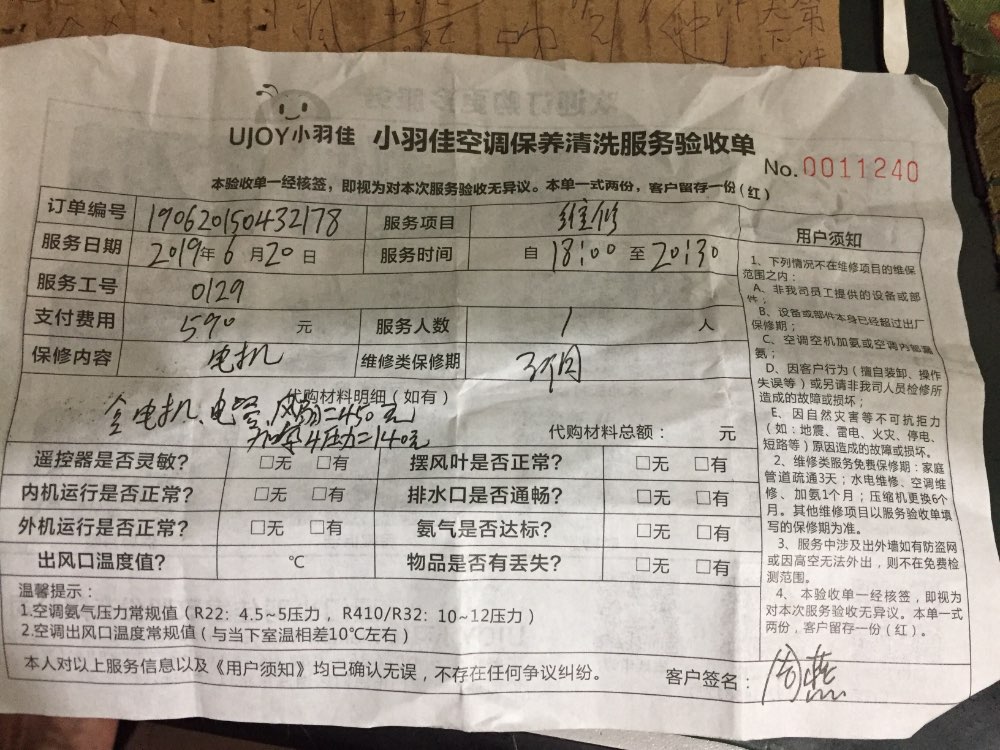 UJOY小羽佳 小羽佳空调保养清洗服务验收单
No.0011240
本验收单一经核签，即视为对本次服务验收无异议。本单一式两份，客户留存一份(红)
订单编号 190620150432178 服务项目 维修
服务日期 2019年6月20日 服务时间 自18:00至20:30
服务工号 0129
支付费用 590元 服务人数 1人
保修内容 电机 维修类保修期 3个月
代购材料明细（如有）
电机、电容、风扇=450元
4压力=140元
代购材料总额： 元
遥控器是否灵敏？ □无 □有 摆风叶是否正常？ □无 □有
内机运行是否正常？ □无 □有 排水口是否通畅？ □无 □有
外机运行是否正常？ □无 □有 氨气是否达标？ □无 □有
出风口温度值？ ℃ 物品是否有丢失？ □无 □有
温馨提示：
1.空调氨气压力常规值（R22：4.5~5压力，R410/R32：10~12压力）
2.空调出风口温度常规值（与当下室温相差10℃左右）
本人对以上服务信息以及《用户须知》均已确认无误，不存在任何争议纠纷。
客户签名：周燕
用户须知
1、下列情况不在维修项目的维保
范围之内：
A、非我司员工提供的设备或部
件；
B、设备或部件本身已经超过出厂
保修期；
C、空调空机加氨或空调内部漏
氨；
D、因客户行为（擅自装卸、操作
失误等）或另请非我司人员检修所
造成的故障或损坏；
E、因自然灾害等不可抗拒力
（如：地震、雷电、火灾、停电、
短路等）原因造成的故障或损坏。
2、维修类服务免费保修期：家庭
管道疏通3天；水电维修、空调维
修、加氨1个月；压缩机更换6个
月。其他维修项目以服务验收单填
写的保修期为准。
3、服务中涉及出外墙如有防盗网
或因高空无法外出，则不在免费检
测范围。
4、本验收单一经核签，即视为
对本次服务验收无异议。本单一式
两份，客户留存一份（红）。